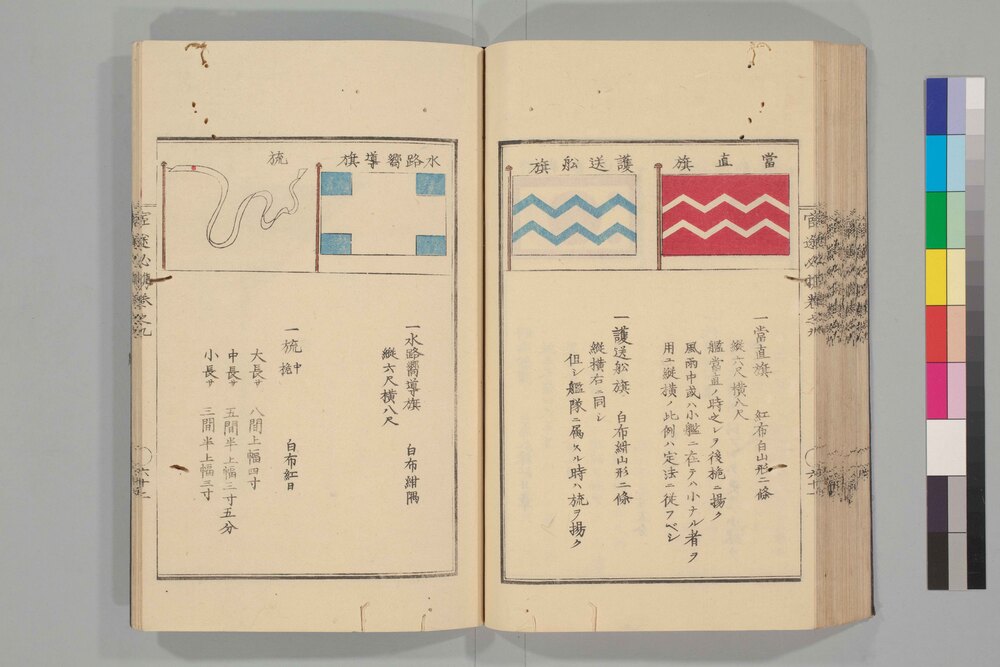 當直旗
護送舩旗
一當直旗　紅布白山形二條
縱六尺橫八尺
艦當直ノ時之レヲ後桅ニ揚ク
風雨中或ハ小艦ニ在テハ小ナル者ヲ
用ユ縱橫ノ比例ハ定法ニ從フベシ
一護送舩旗　白布紺山形二條
縱橫右ニ同シ
但シ艦隊ニ属スル時ハ旒ヲ揚ク
水路嚮導旗
旒
一水路嚮導旗　白布紺隅
縱六尺橫八尺
一旒　中桅　白布紅日
大長サ　八間上幅四寸
中長サ　五間半上幅三寸五分
小長サ　三間半上幅三寸